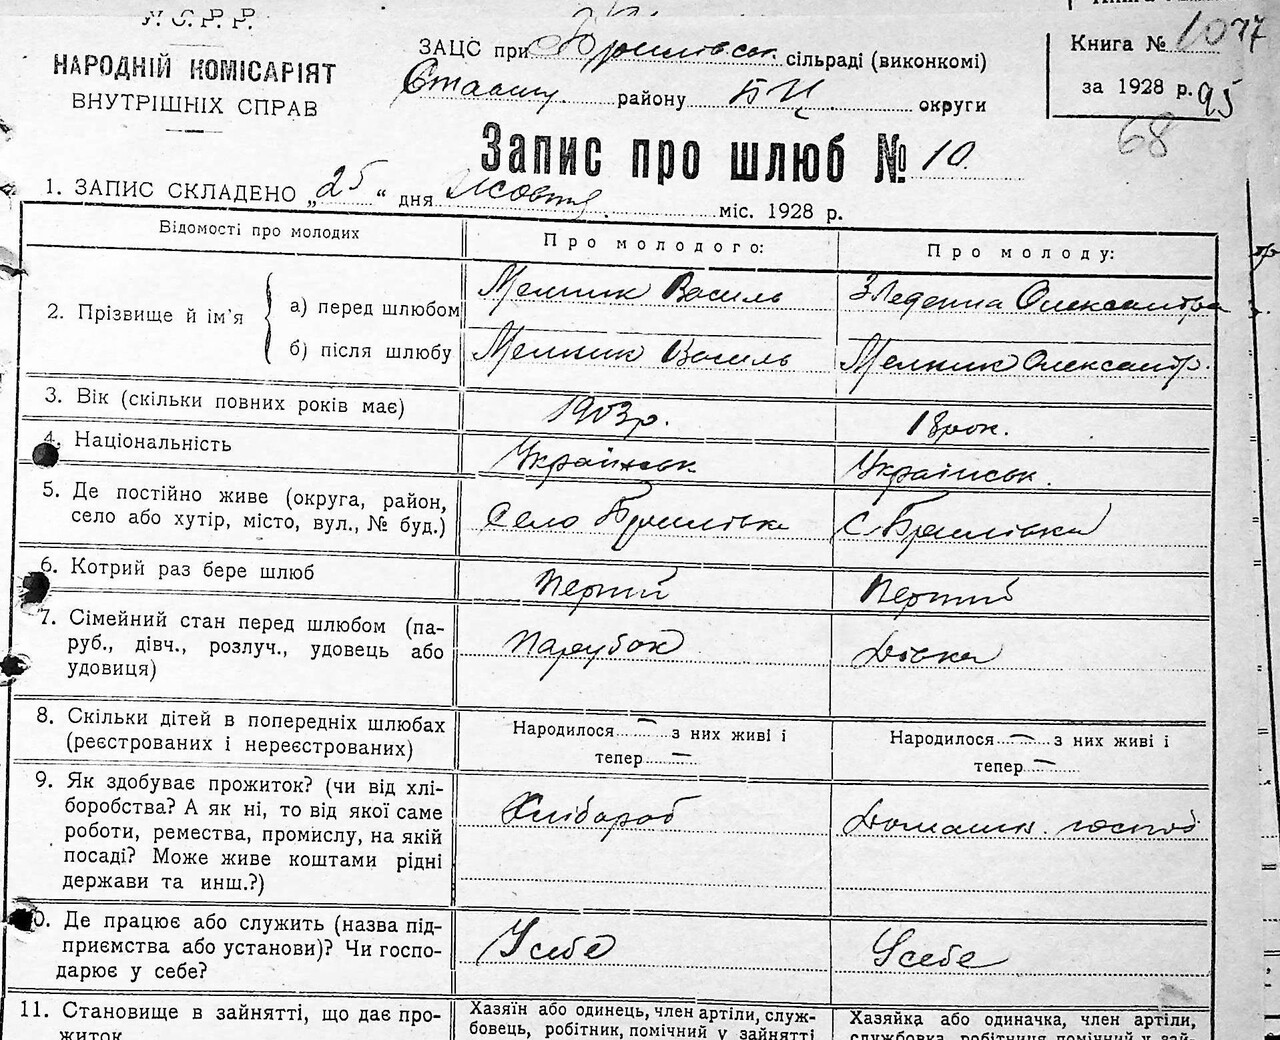 У. С. Р. Р.
НАРОДНІЙ КОМІСАРІЯТ
ВНУТРІШНІХ СПРАВ
ЗАЦС при сільраді (виконкомі)
району БЦ округи
Книга № 1077
за 1928 р. 95
68
Запис про шлюб № 10.
1. ЗАПИС СКЛАДЕНО „25“ дня Жовтня міс. 1928 р.
Відомості про молодих
Про молодого:
Про молоду:
2. Прізвище й ім’я
а) перед шлюбом
Мелник Василь
Олександра
б) після шлюбу
Мелник Василь
Мелник Олександр.
3. Вік (скільки повних років має)
1903р.
18 рок.
4. Національність
Українськ
Українськ.
5. Де постійно живе (округа, район,
село або хутір, місто, вул., № буд.)
Село
С.
6. Котрий раз бере шлюб
Перший
Перший
7. Сімейний стан перед шлюбом (па-
руб., дівч., розлуч., удовець або
удовиця)
Парубок
Дівка
8. Скільки дітей в попередніх шлюбах
(реєстрованих і нереєстрованих)
Народилося — з них живі і
тепер —
Народилося — з них живі і
тепер —
9. Як здобуває прожиток? (чи від хлі-
боробства? А як ні, то від якої саме
роботи, ремества, промислу, на якій
посаді? Може живе коштами рідні
держави та инш.?)
Хлібороб
Домашн. господ
10. Де працює або служить (назва під-
приємства або установи)? Чи госпо-
дарює у себе?
У себе
У себе
11. Становище в зайнятті, що дає про-
житок
Хазяїн або одинець, член артілі, служ-
бовець, робітник, помічний у зайнятті
Хазяйка або одиначка, член артілі,
службовка, робітниця помічний у зай-